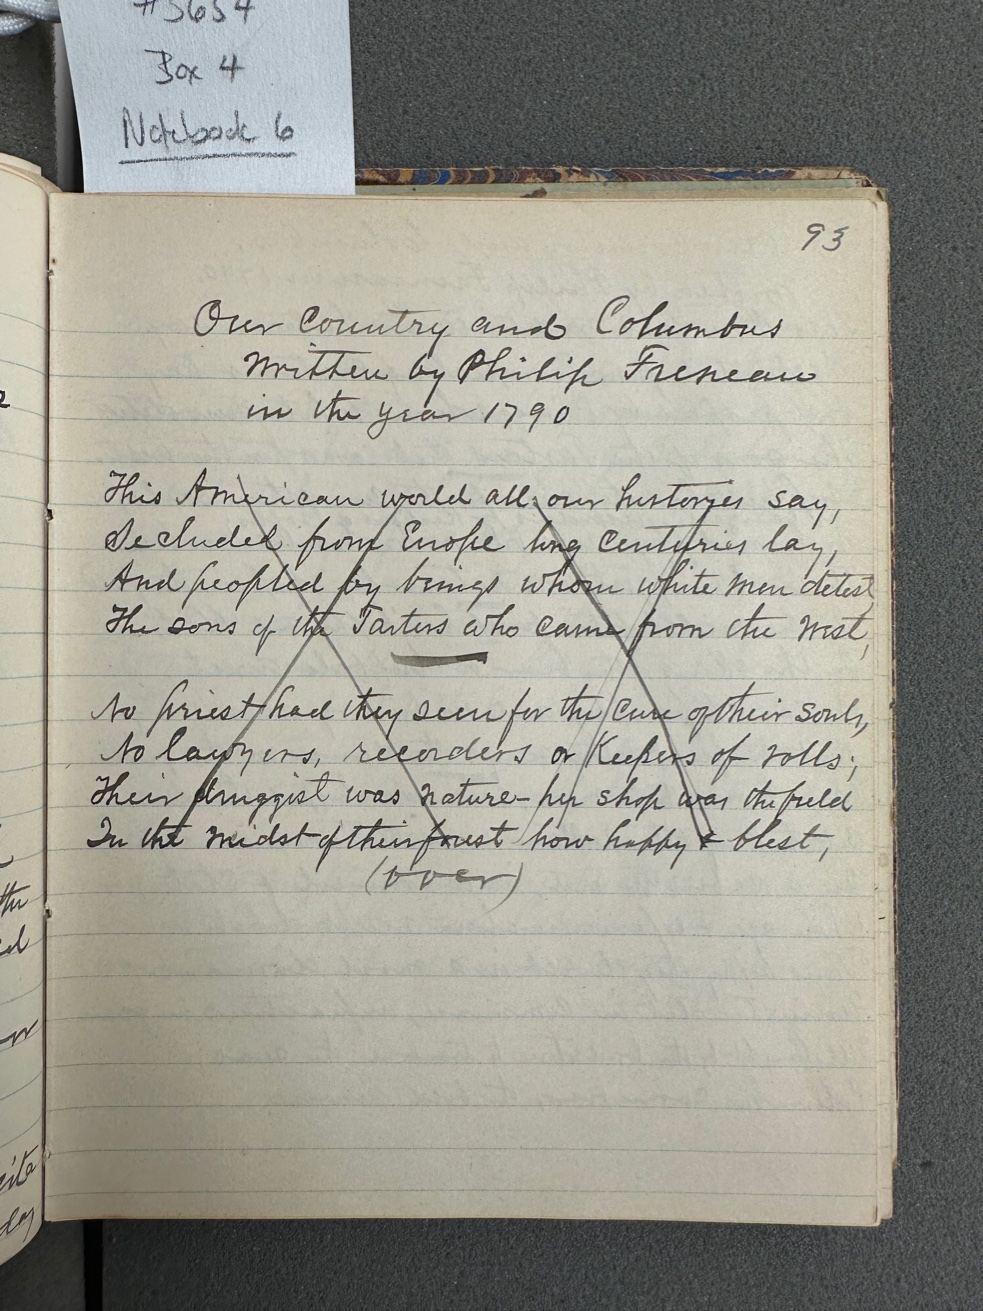 #3654
Box 4
Notebook 6
93
Our Country and Columbus
Written by Philip Freneau
in the year 1790
This American world all our historyes say,
Secluded from Europe long centuries lay,
And peopled by beings whom white men detest,
The sons of the Tarters who came from the West,
No priest had they seen for the cure of their souls,
No lawyers, recorders or Keepers of rolls;
Their druggist was nature - her shop was the field
In the midst of their forest how happy & blest,
(over)